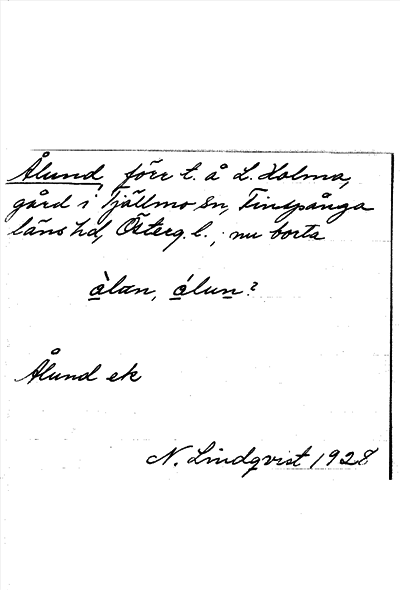 Ålund, förr t. å L. Holma,
gård i Tjällmo sn, Finspånga
läns hd, Österg. l.; nu borta
òlan, ólun?
Ålund ek
N. Lindqvist 1928